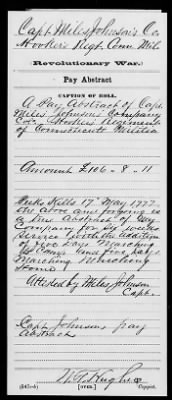 Capt. Miles Johnson's Co.
Hooker's Regt. Conn. Mil.
(Revolutionary War.)
Pay Abstract
CAPTION OF ROLL.
A Pay Abstract of Capt.
Miles Johnson's Company
Col. Hooker's Regiment
of Connecticut Militia
Amount £106 - 8 - 11
Peeks Kills 17. May 1777
the above and forgoing is
a true Abstract of my
Company for six weeks
Service with the addition
of five Days Marching
to Camp and five Days
Marching Returning
Home
Attested by Miles Johnson
Capt.
Capt Johnsons pay
Abstract
Copyist.